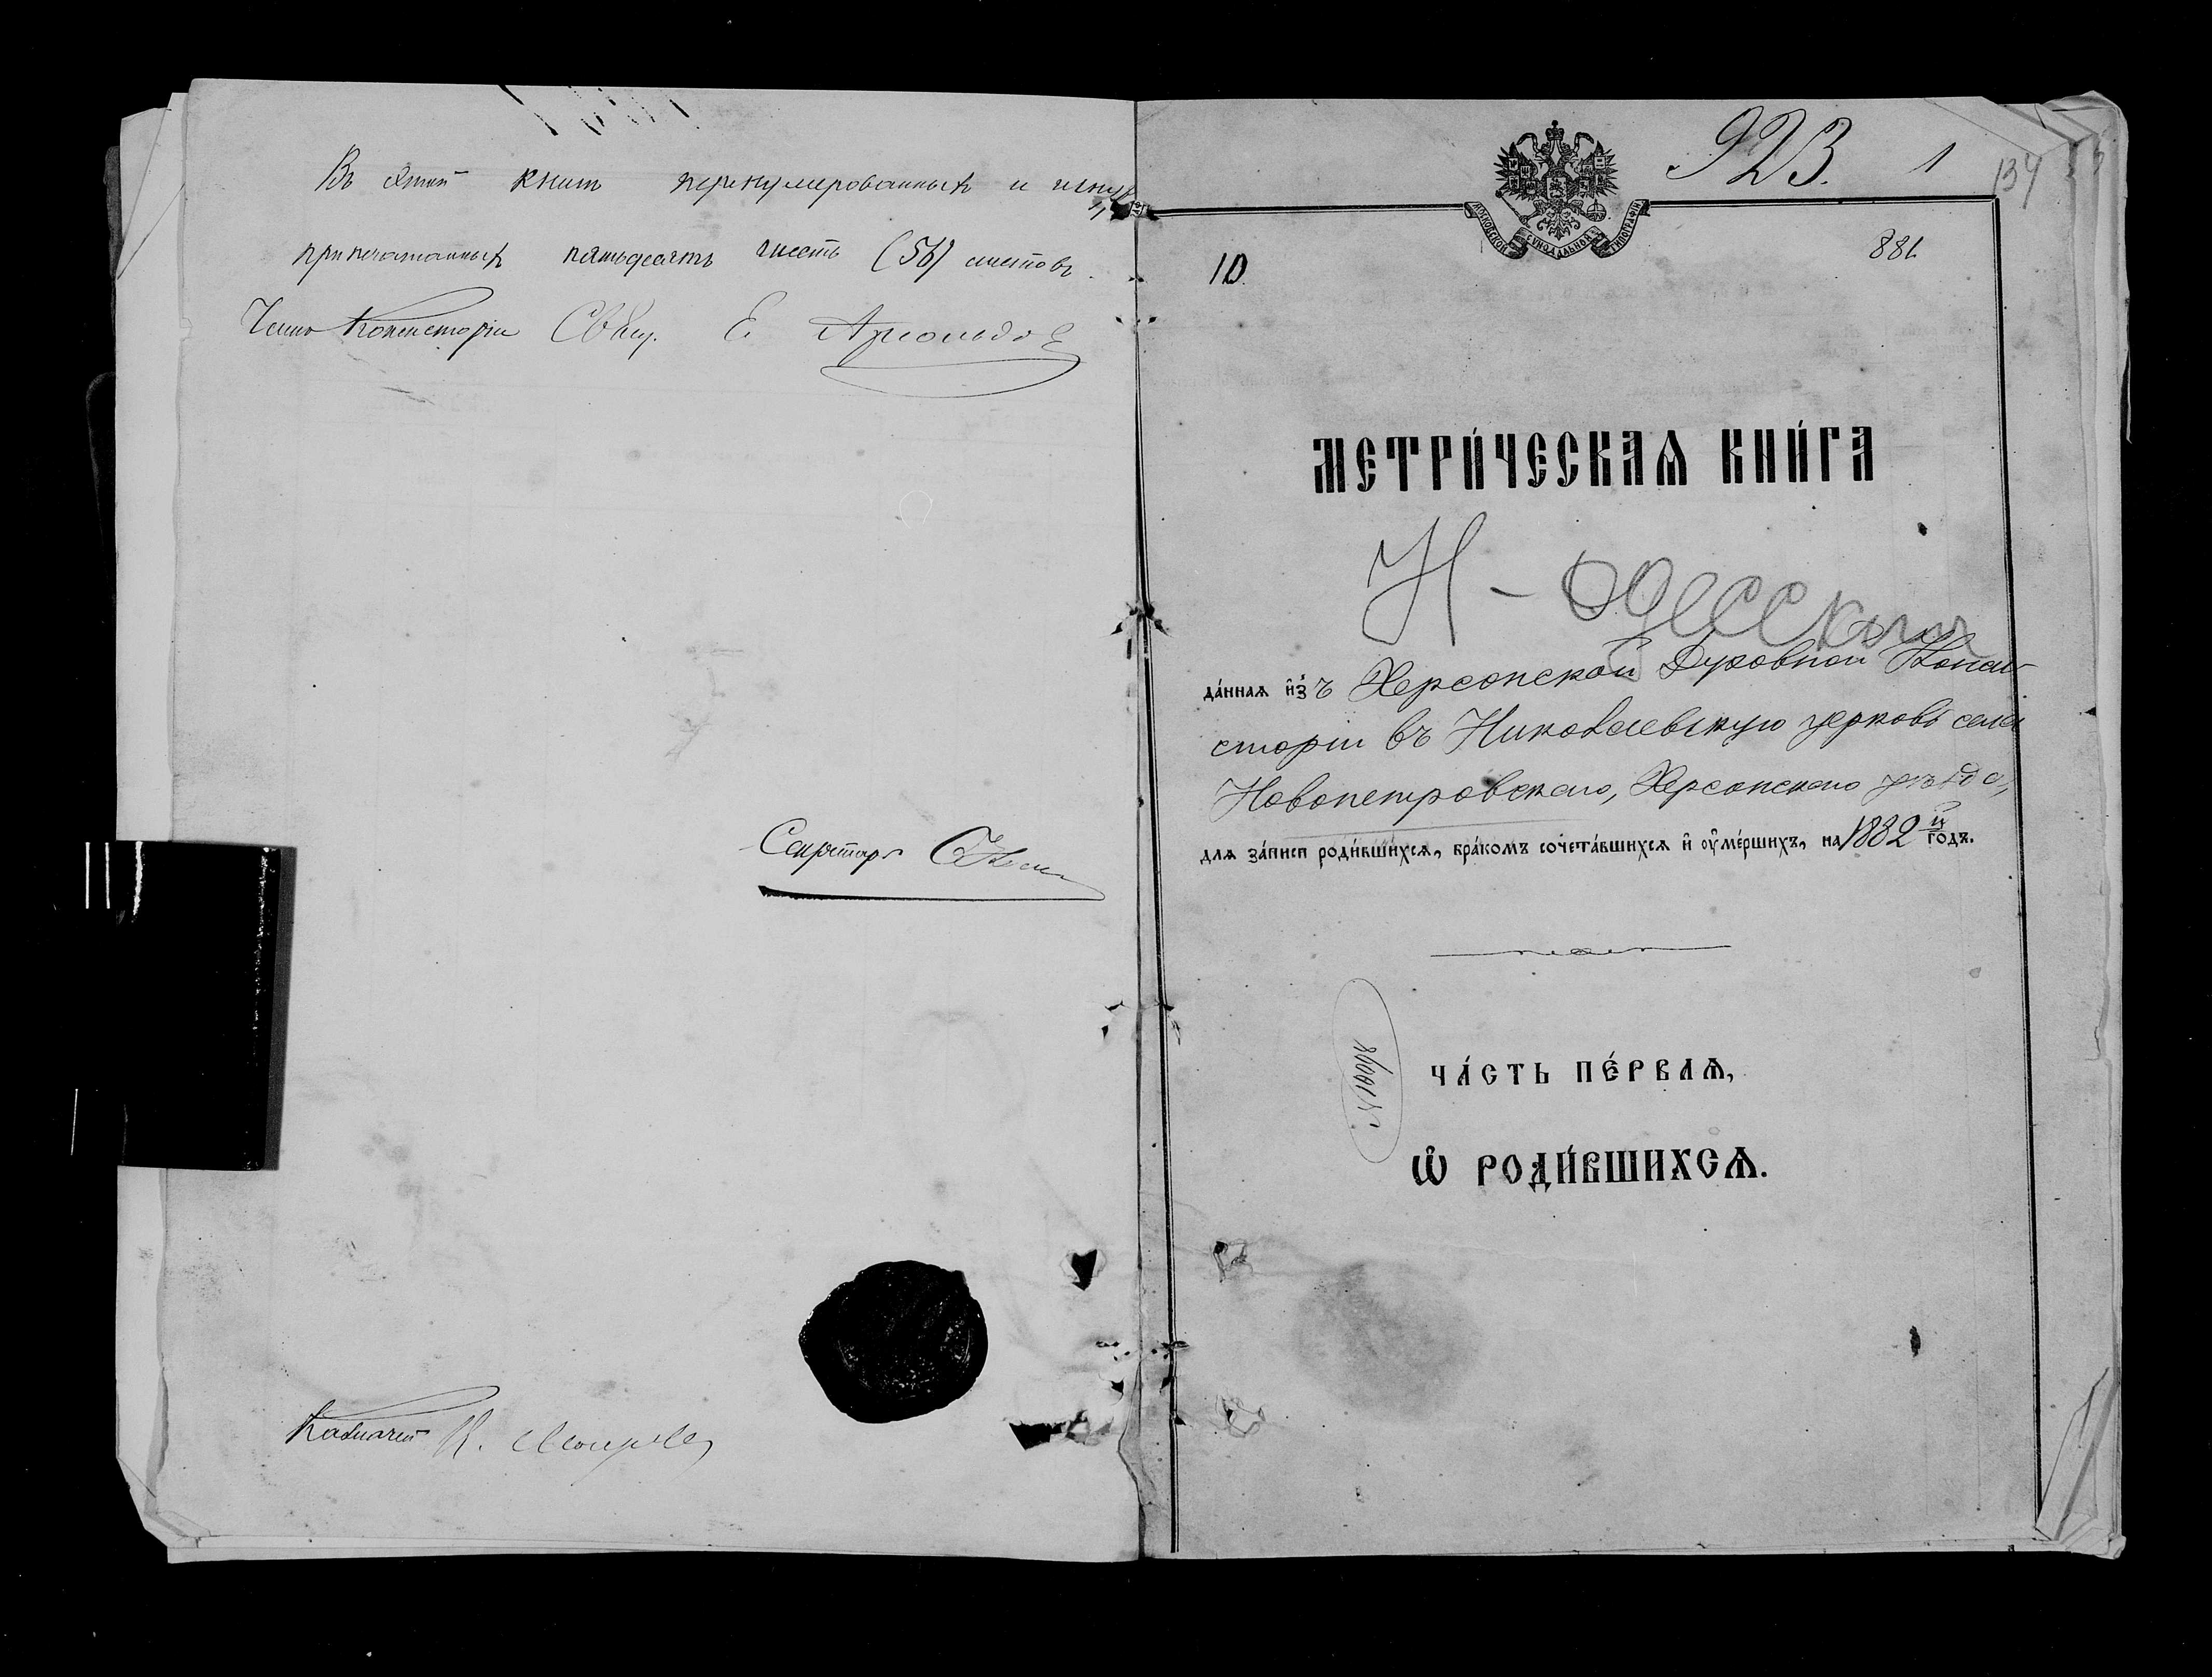 Въ этой книгѣ перенумерованныхъ и шнуро
припечатанныхъ пятьдесятъ шесть (56) листовъ.
Членъ Консисторіи Свящ. Е. Арнольдовъ
Секретарь
Казначей К.
923. 1 134
МОСКОВСКОЙ СѴНОДАЛЬНОЙ ТИПОГРАФІИ
881
10
МЕТРИ́ЧЕСКАѦ КНИ́ГА
Н-Одесскій
да́ннаѧ и҆зъ Херсонской Духовной Конси-
сторіи въ Николаевскую церковь села
Новопетровскаго, Херсонскаго уѣзда,
для за́писи роди́вшихсѧ, бра́комъ сочета́вшихсѧ и҆ ᲂу҆ме́ршихъ, на 1882й годъ.
ЧА́СТЬ ПЕ́РВАѦ,
Ѽ РОДИ́ВШИХСѦ.